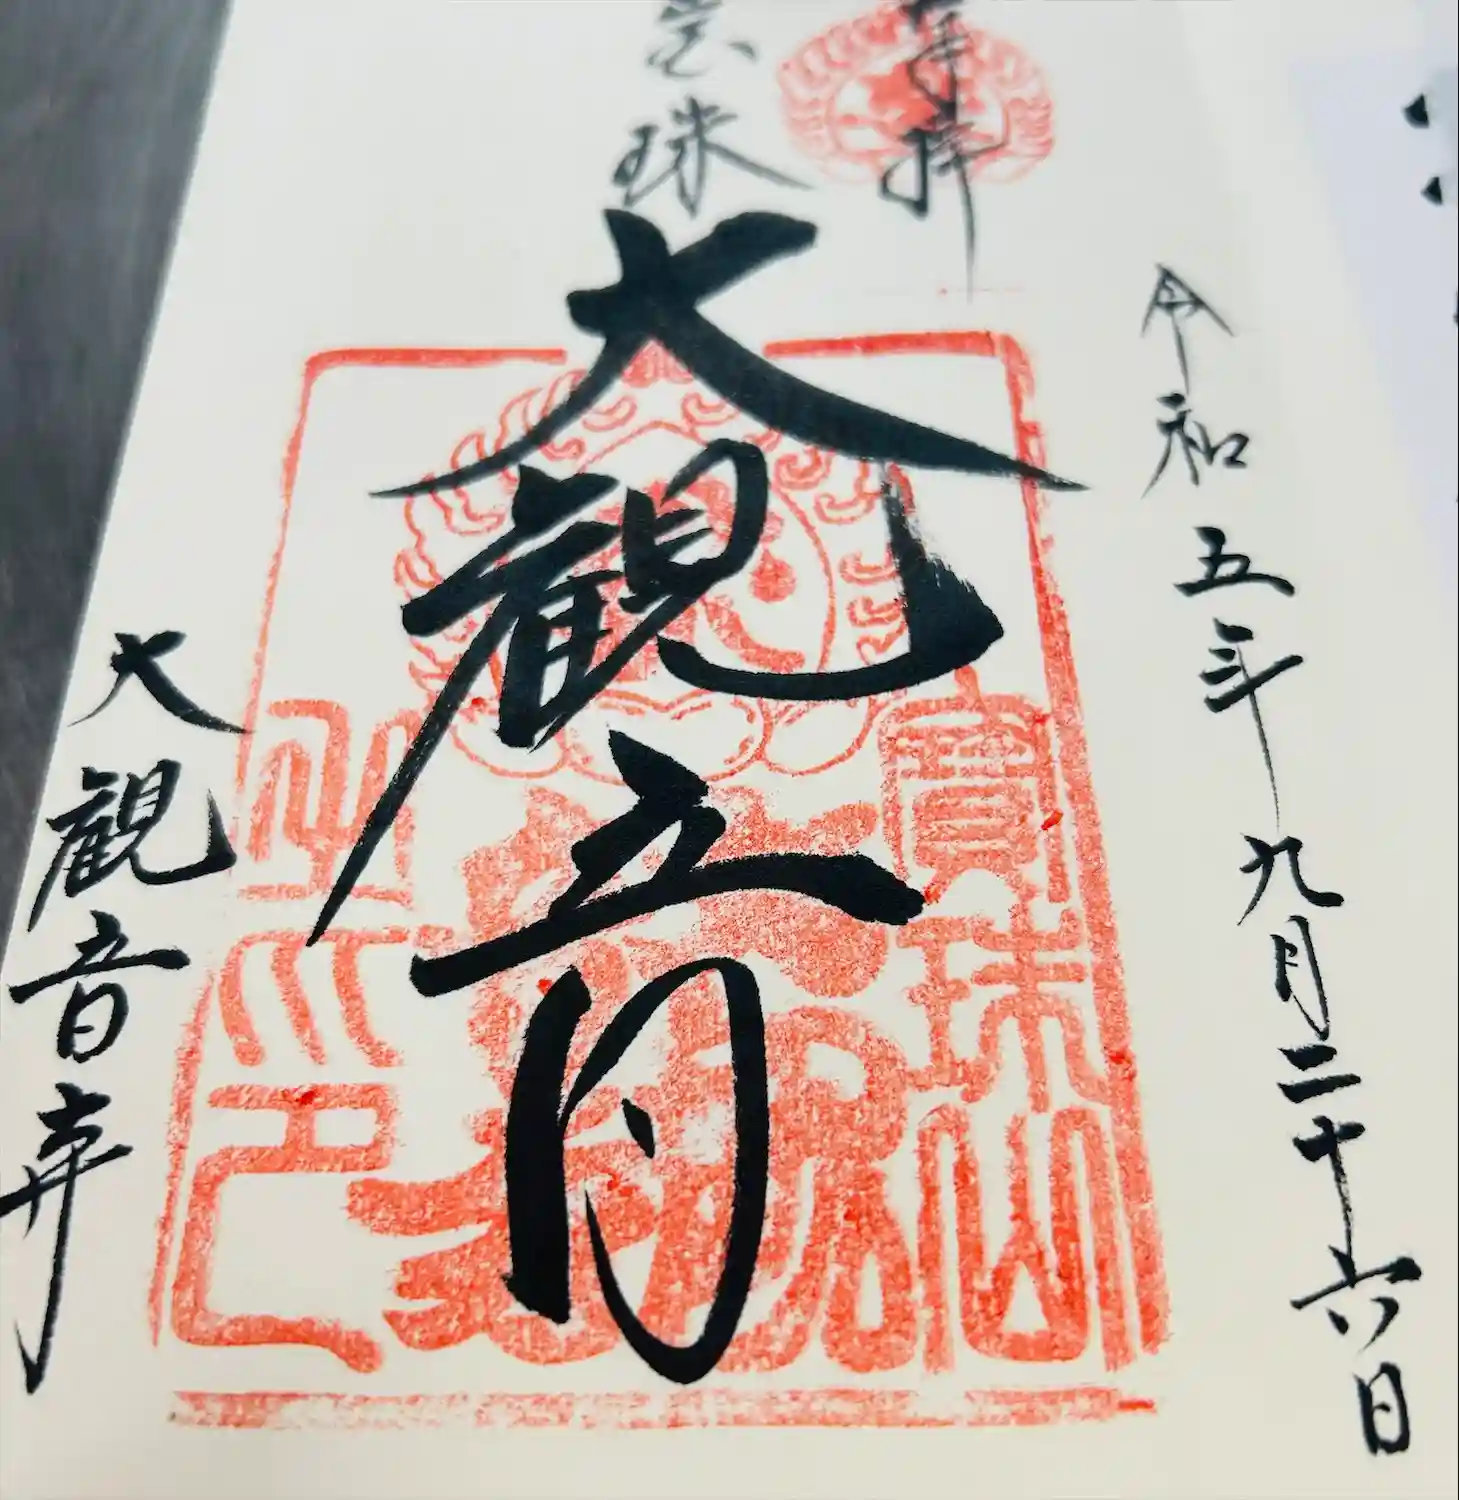 令和五年九月二十六日
奉拝
宝珠
大観音
寶珠山
之印
大観音寺